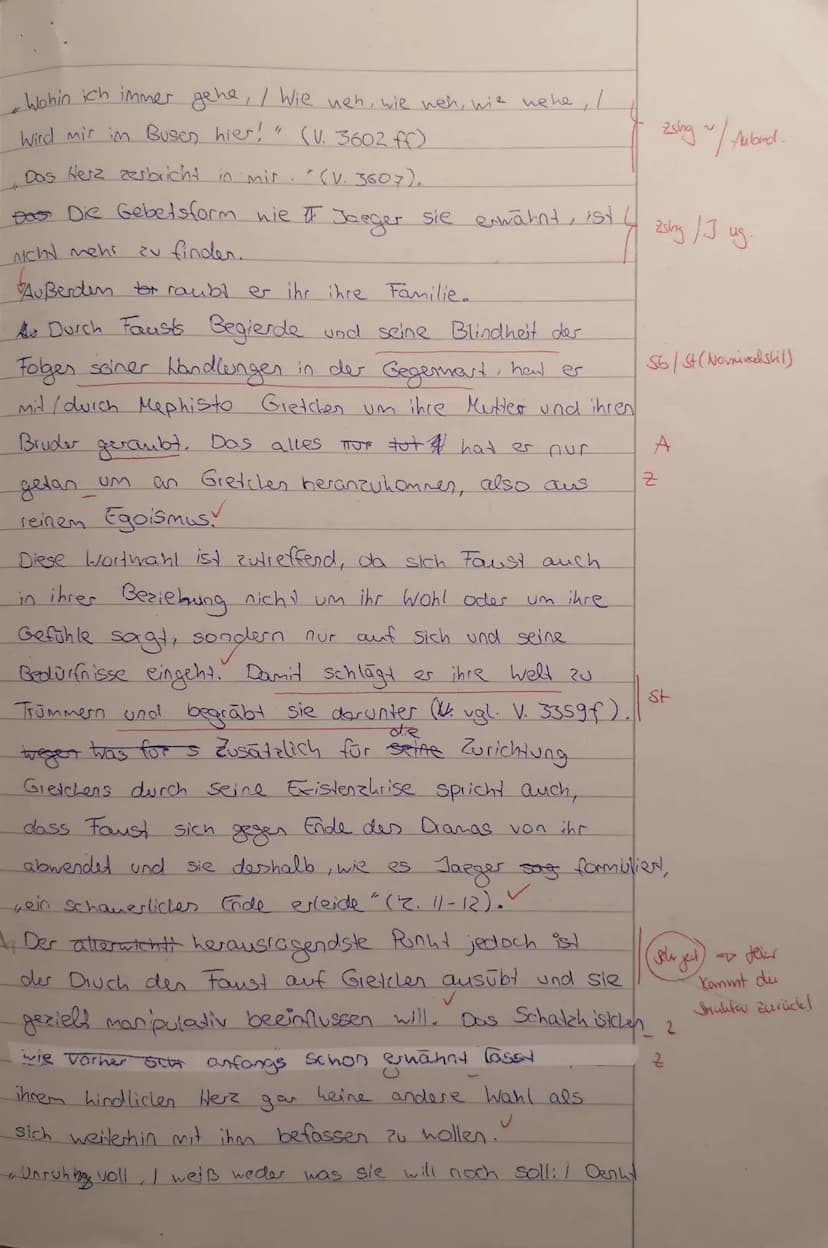 „Wohin ich immer gehe, / Wie weh, wie weh, wie wehe, /
Wird mir im Busen hier!" (V. 3602 ff)
zshg ~/ Anbind.
„Das Herz zerbricht in mir." (V. 3607).
Das Die Gebetsform wie Jaeger sie erwähnt, ist
zshg / I ug.
nicht mehr zu finden.
Außerdem raubt er ihr ihre Familie.
Durch Fausts Begierde und seine Blindheit der
Folgen seiner Handlungen in der Gegenwart, hat er
Sb / St (Nominalstil)
mit/durch Mephisto Gretchen um ihre Mutter und ihren
Bruder geraubt. Das alles nur tut hat er nur
A
getan um an Gretchen heranzukommen, also aus
Z
reinem Egoismus.
Diese Wortwahl ist zutreffend, da sich Faust auch
in ihrer Beziehung nicht um ihr Wohl oder um ihre
Gefühle sorgt, sondern nur auf sich und seine
Bedürfnisse eingeht. Damit schlägt er ihre Welt zu
St
Trümmern und begräbt sie darunter (V. vgl. V. 3359f).
die
wegen Was für s Zusätzlich für seine Zurichtung
Gretchens durch seine Existenzkrise spricht auch,
dass Faust sich gegen Ende des Dramas von ihr
abwendet und sie deshalb, wie es Jaeger sag formuliert,
„ein schauerliches Ende erleide" (Z. 11-12).
Der allerwicht herausragendste Punkt jedoch ist
sehr gut → hier
der Druck den Faust auf Gretchen ausübt und sie
kommt die
Struktur zurück!
gezielt manipulativ beeinflussen will. Das Schatzkistchen
Z
wie vorher anfangs schon erwähnt lässt
Z
ihrem kindlichen Herz gar keine andere Wahl als
sich weiterhin mit ihm befassen zu wollen.
„Unruhig voll, / weiß weder was sie will noch soll: / Denkt